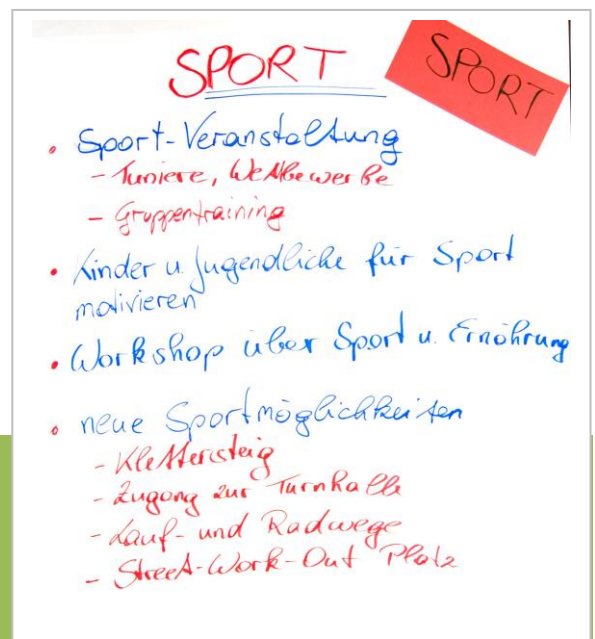 SPORT
SPORT
• Sport-Veranstaltung
- Turniere, Wettbewerbe
- Gruppentraining
• Kinder u. Jugendliche für Sport
motivieren
• Workshop über Sport u. Ernährung
• neue Sportmöglichkeiten
- Klettersteig
- Zugang zur Turnhalle
- Lauf- und Radwege
- Street-Work-Out Platz